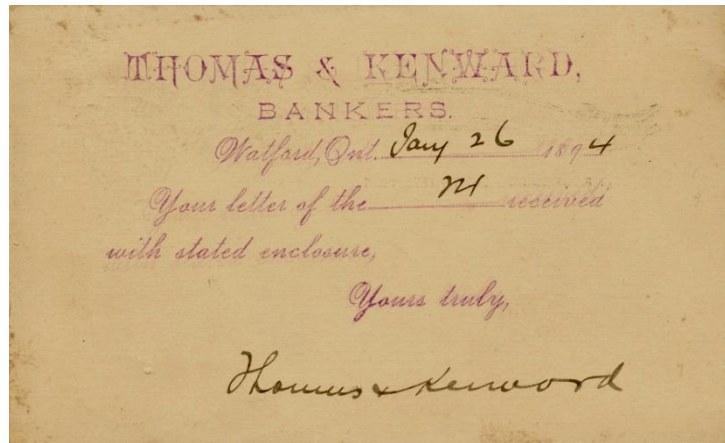 THOMAS & KENWARD,
BANKERS.
Watford, Ont. Jany 26 1894
Your letter of the 24 received
with stated enclosure,
Yours truly,
Thomas & Kenward